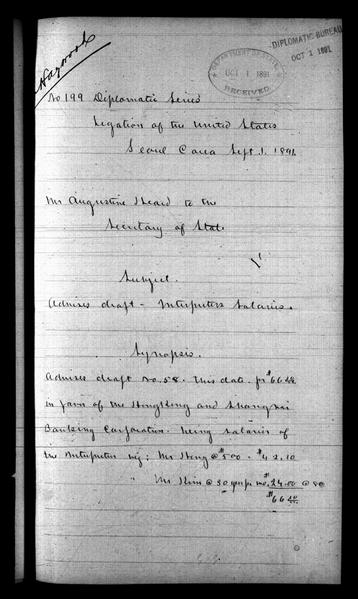 Haywood
DEPARTMENT OF STATE
OCT 1 1891
RECEIVED
DIPLOMATIC BUREAU
OCT 1 1891
No 199 Diplomatic Series
Legation of the United States
Seoul Corea Sept. 1. 1891
Mr Augustine Heard to the
Secretary of State
Subject.
Advises draft - Interpreters Salaries.
Synopsis.
Advises draft No. 58. this date. for $66
in favor of the HongKong and Shanghai
Banking Corporation. being salaries of
the Interpreters viz: Mr @ $500 - $42.10
" Mr @ 30 mo. 24.00 @ 80
$66